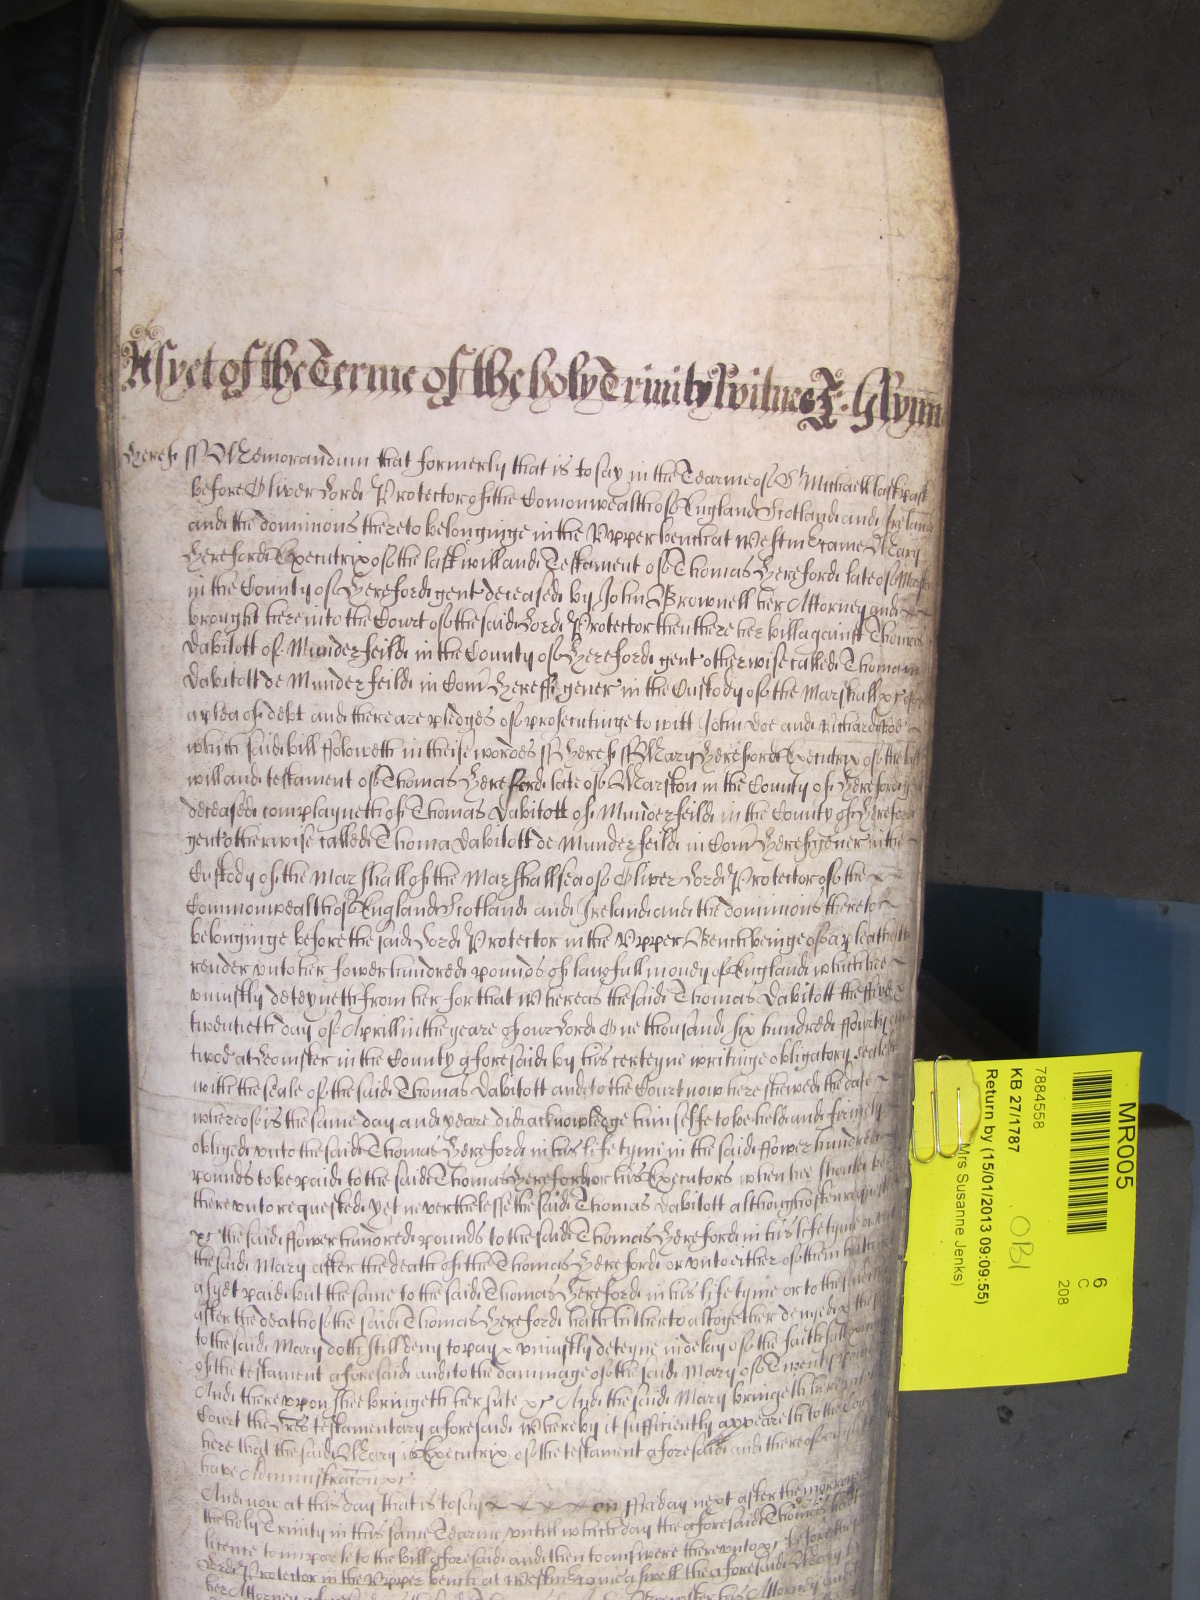 As yet of the Terme of the holy Trinity Witnes J. Glynn
Heref ss Memorandum that formerly that is to say in the Tearme of St Michaell last past
before Oliver Lord Protector of the Comonwealth of England Scotland and Ireland
and the dominions thereto belonginge in the Upper bench at Westm came Mary
Hereford Executrix of the last will and Testament of Thomas Hereford late of
in the County of Hereford gent deceased by John Brownell her Attorney and
brought here into the Court of the said Lord Protector then there her bill against Thomas
Dabitott of Munderfeild in the County of Hereford gent otherwise called Thoma
Dabitott de Munderfeild in Com Hereff gener in the Custody of the Marshall &c
a plea of debt and there are pledges of prosecutinge to witt John Doe and Richard Roe
which said bill followeth in theise wordes ss Heref ss Mary Hereford Executrix of the last
will and testament of Thomas Hereford late of Marston in the County of Hereford
deceased complayneth of Thomas Dabitott of Munderfeild in the County of Hereford
gent otherwise called Thoma Dabitott de Munderfeild in Com Heref gener in the
Custody of the Marshall of the Marshallsea of Oliver Lord Protector of the
Commonwealth of England Scotland and Ireland and the dominions thereto
belonginge before the said Lord Protector in the Upper Bench beinge of a plea that
render unto her fower hundred pounds of lawfull money of England which hee
uniustly deteyneth from her for that Whereas the said Thomas Dabitott the five &
twentieth day of Aprill in the yeare of our Lord One thousand six hundred fourty and
twoe at Leomster in the County aforesaid by his certeyne writinge obligatory sealed
with the seale of the said Thomas Dabitott and to the Court now here shewed the date
whereof is the same day and yeare did acknowledge himselfe to be held and firmely
obliged unto the said Thomas Hereford in his life tyme in the said ffower hundred
pounds to be paid to the said Thomas Hereford or his Executors when hee should be
thereunto requested yet neverthelesse the said Thomas Dabitott although often requested
&c the said ffower hundred pounds to the said Thomas Hereford in his life tyme or unto
the said Mary after the death of the Thomas Hereford or unto either of them hath not
as yet paid but the same to the said Thomas Hereford in his life tyme or to the said
after the death of the said Thomas Hereford hath hitherto altogether denyed & the
to the said Mary doth still deny to pay & uniustly deteyne in delay of the faithfull
of the testament aforesaid and to the dammage of the said Mary of Twenty pounds
And thereupon shee bringeth her sute &c And the said Mary bringeth here into
Court the Lres testamentary aforesaid Whereby it sufficiently appeareth to the Court
here that the said Mary is Executrix of the testament aforesaid and thereof
have Administracon &c
And now at this day that is to say on ffriday next after the morrow
the holy Trinity in this same Tearme untill which day the aforesaid Thomas had
licence to imparle to the bill aforesaid and then to answere thereunto &c before the
Lord Protector in the Upper bench at Westm came aswell the aforesaid Mary by
her Attorney
MR005
6
C
208
7884558
KB 27/1787
OBI
Return by (15/01/2013 09:09:55)
Mrs Susanne Jenks)